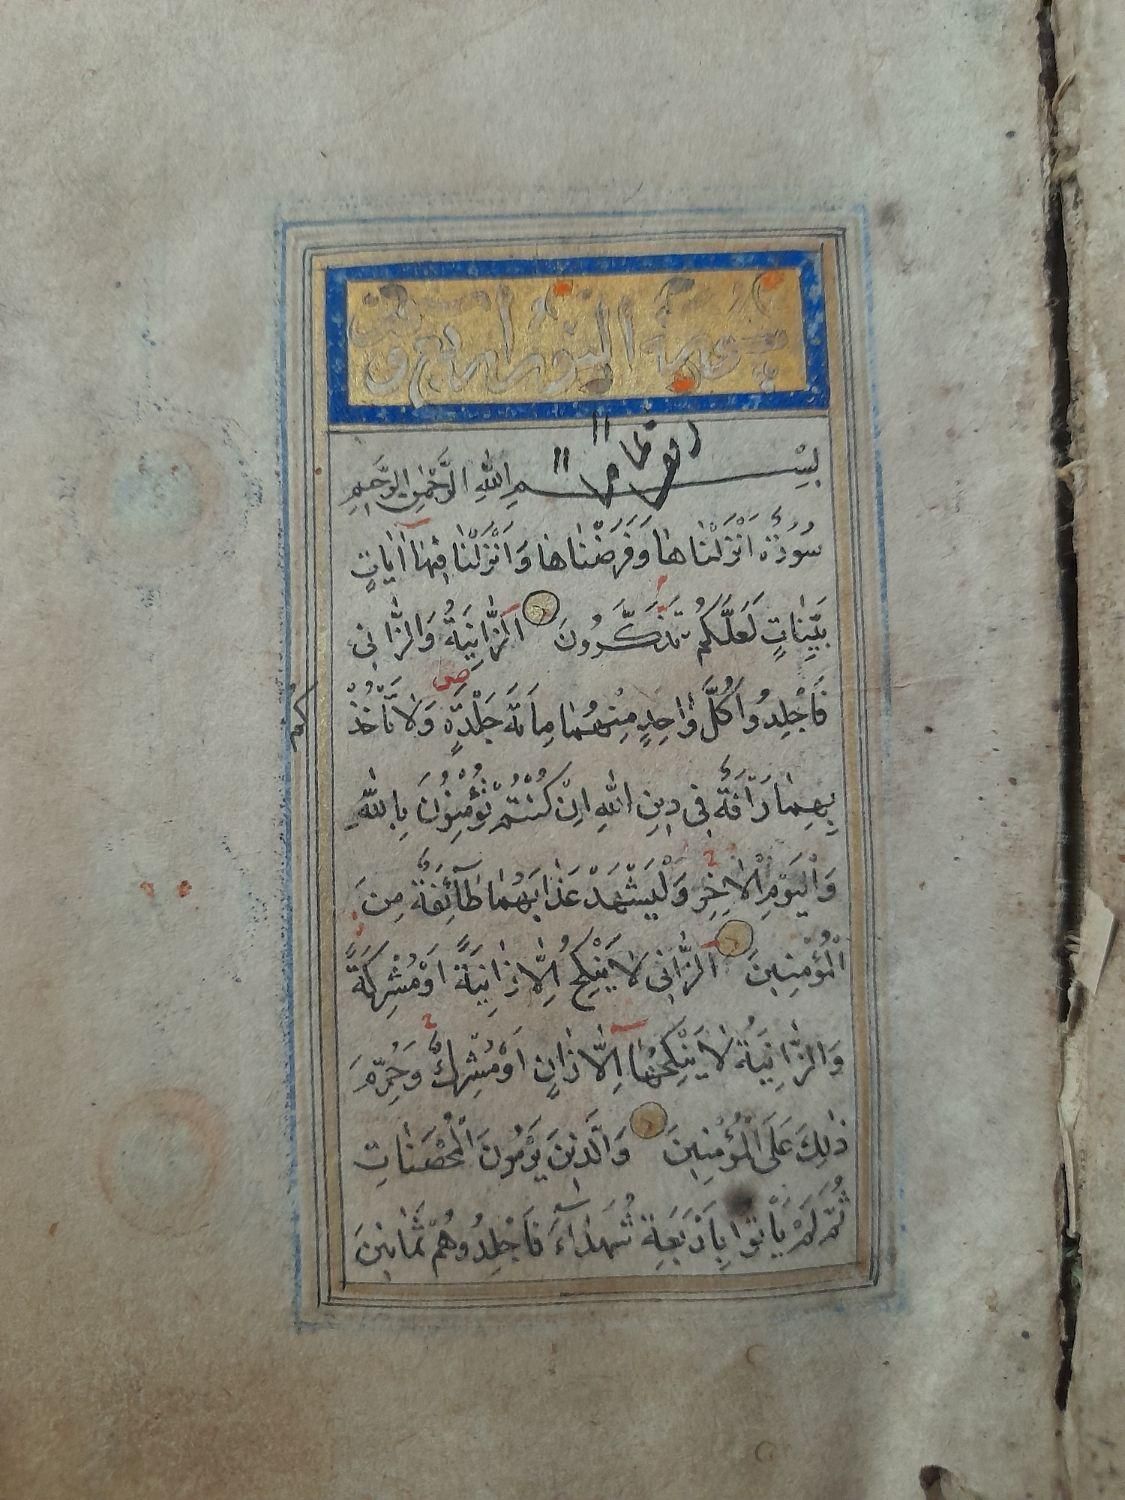 سورة النور اربع و
بِسْمِ اللهِ الرَّحْمٰنِ الرَّحِيمِ
سُورَةٌ اَنْزَلْنَاهَا وَفَرَضْنَاهَا وَاَنْزَلْنَا فِيهَا اٰيَاتٍ
بَيِّنَاتٍ لَعَلَّكُمْ تَذَكَّرُونَ اَلزَّانِيَةُ وَالزَّانِى
فَاجْلِدُوا كُلَّ وَاحِدٍ مِنْهُمَا مِائَةَ جَلْدَةٍ وَلَا تَأْخُذْ
كُمْ
بِهِمَا رَأْفَةٌ فِى دِينِ اللهِ اِنْ كُنْتُمْ تُؤْمِنُونَ بِاللهِ
وَالْيَوْمِ الْاٰخِرِ وَلْيَشْهَدْ عَذَابَهُمَا طَآئِفَةٌ مِنَ
الْمُؤْمِنِينَ اَلزَّانِى لَا يَنْكِحُ اِلَّا زَانِيَةً اَوْ مُشْرِكَةً
وَالزَّانِيَةُ لَا يَنْكِحُهَا اِلَّا زَانٍ اَوْ مُشْرِكٌ وَحُرِّمَ
ذٰلِكَ عَلَى الْمُؤْمِنِينَ وَالَّذِينَ يَرْمُونَ الْمُحْصَنَاتِ
ثُمَّ لَمْ يَأْتُوا بِاَرْبَعَةِ شُهَدَآءَ فَاجْلِدُوهُمْ ثَمَانِينَ